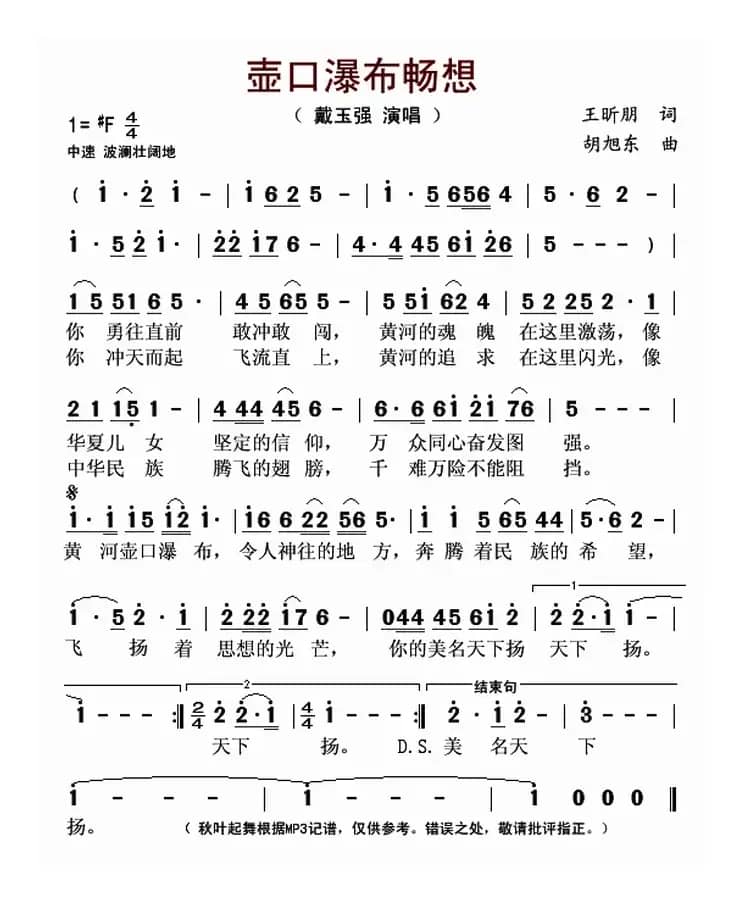 壶口瀑布畅想
（ 戴玉强 演唱 ）
王昕朋 词
1= #F 4/4
中速 波澜壮阔地
胡旭东 曲
( 1 · 2 1 - | 1 6 2 5 - | 1 · 5 656 4 | 5 · 6 2 - |
1 · 5 2 1 · | 22 17 6 - | 4 · 4 45 61 26 | 5 - - - )
1 5 51 6 5 · | 4 5 65 5 - | 5 51 62 4 | 5 2 25 2 · 1 |
你 勇往直前 敢冲敢 闯， 黄河的魂 魄 在这里激荡，像
你 冲天而起 飞流直 上， 黄河的追 求 在这里闪光，像
2 1 15 1 - | 4 44 45 6 - | 6 · 6 61 21 76 | 5 - - - |
华夏儿 女 坚定的信 仰， 万 众同心奋发图 强。
中华民 族 腾飞的翅 膀， 千 难万险不能阻 挡。
1 · 1 15 12 1 · | 16 6 22 56 5 · | 1 1 5 65 44 | 5 · 6 2 - |
黄 河壶口瀑 布，令人神往的地 方，奔 腾着民族的 希 望，
1 · 5 2 · 1 | 2 22 17 6 - | 044 45 61 2 | 2 2 · 1 1 - - |
1
飞 扬 着 思想的光 芒， 你的美名天下扬 天下 扬。
2
结束句
1 - - - :| 2/4 2 2 · 1 | 4/4 1 - - - :| 2 · 1 2 - | 3 - - - |
天下 扬。 D.S. 美 名天 下
1 - - - | 1 - - - | 1 0 0 0 ‖
扬。 （ 秋叶起舞根据MP3记谱，仅供参考。错误之处，敬请批评指正。）